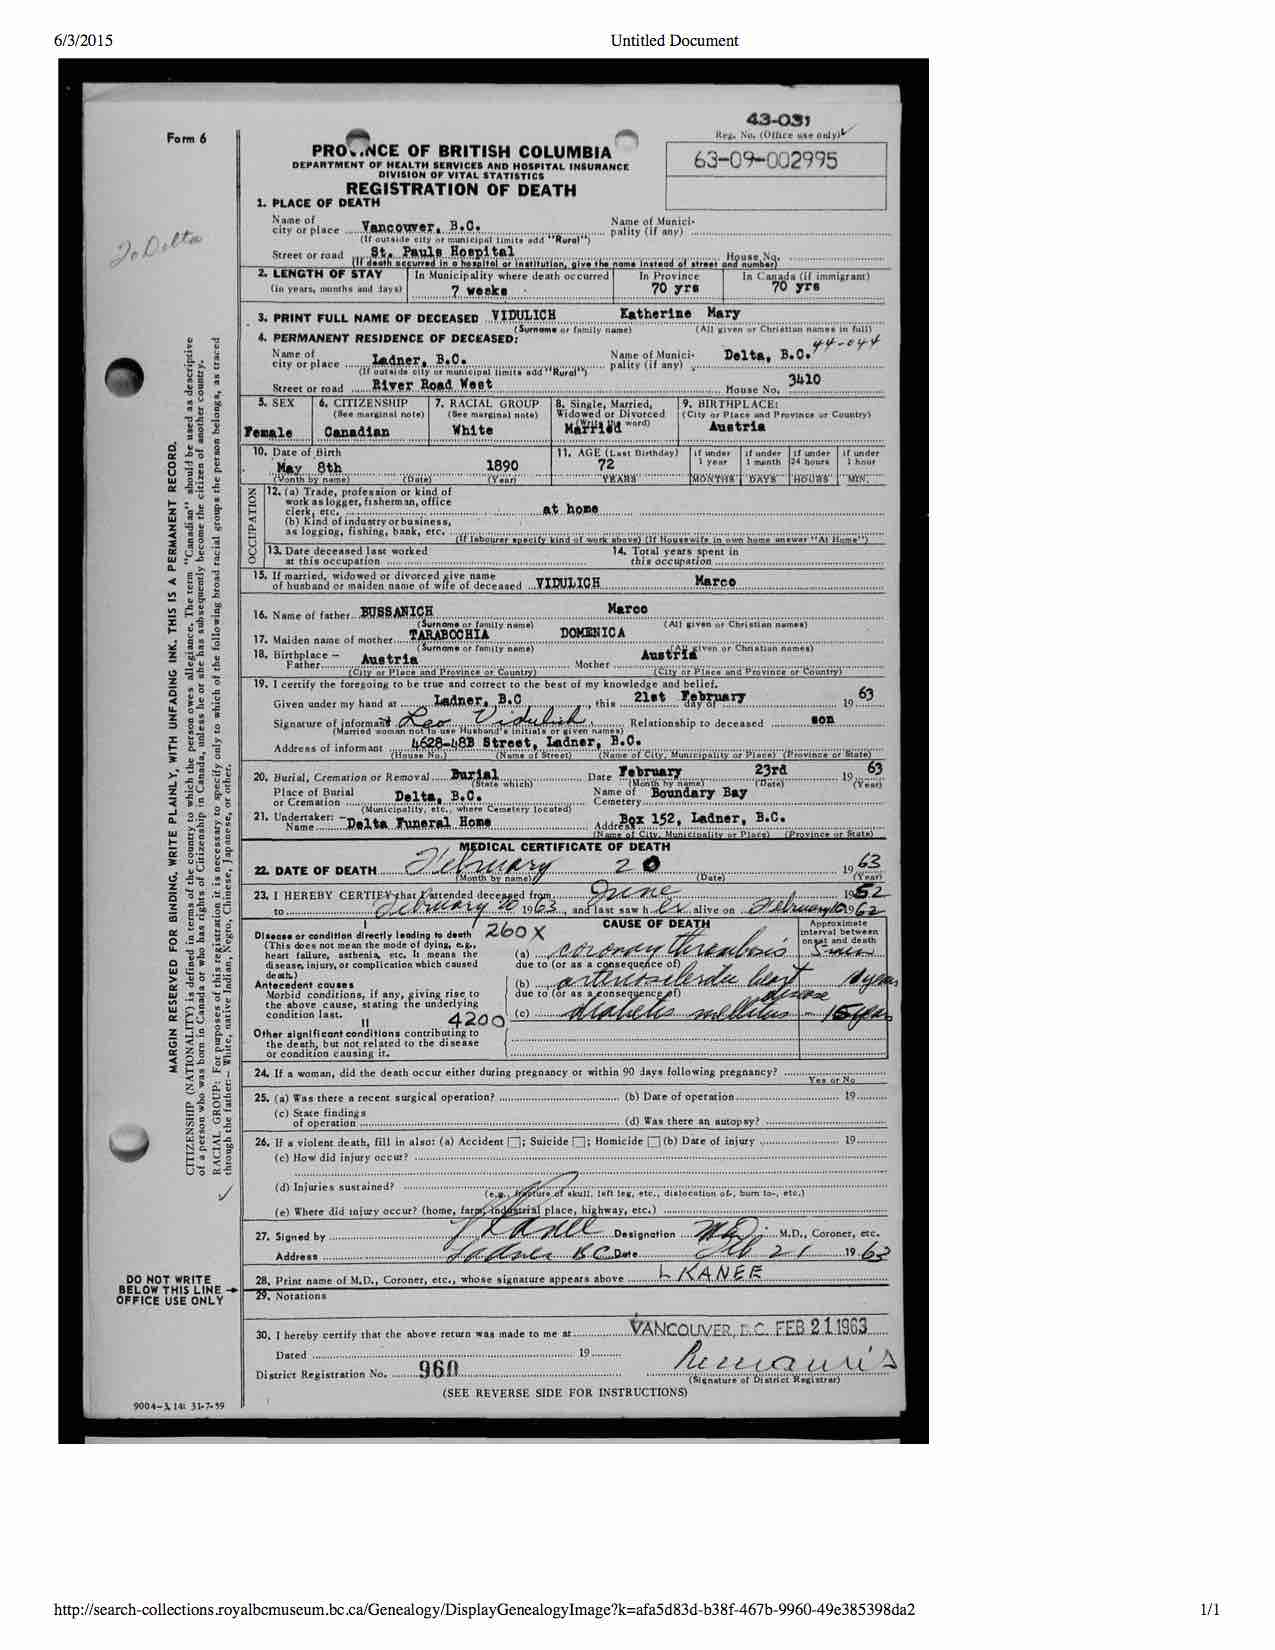 6/3/2015
Untitled Document
43-031
Form 6
Reg. No. (Office use only)
PROVINCE OF BRITISH COLUMBIA
63-09-002995
DEPARTMENT OF HEALTH SERVICES AND HOSPITAL INSURANCE
DIVISION OF VITAL STATISTICS
REGISTRATION OF DEATH
To Delta
1. PLACE OF DEATH
Name of city or place Vancouver, B.C. Name of Municipality (if any)
(If outside city or municipal limits add "Rural")
Street or road St. Pauls Hospital House No.
(If death occurred in a hospital or institution, give the name instead of street and number)
2. LENGTH OF STAY In Municipality where death occurred In Province In Canada (if immigrant)
(in years, months and days) 7 weeks 70 yrs 70 yrs
3. PRINT FULL NAME OF DECEASED VIDULICH Katherine Mary
(Surname or family name) (All given or Christian names in full)
4. PERMANENT RESIDENCE OF DECEASED: 44-044
Name of city or place Ladner, B.C. Name of Municipality Delta, B.C.
(If outside city or municipal limits add "Rural")
Street or road River Road West House No. 3410
5. SEX 6. CITIZENSHIP 7. RACIAL GROUP 8. Single, Married, 9. BIRTHPLACE:
(See marginal note) (See marginal note) Widowed or Divorced (City or Place and Province or Country)
(Write the word)
Female Canadian White Married Austria
10. Date of Birth 11. AGE (Last Birthday) if under 1 year if under 1 month if under 24 hours if under 1 hour
May 8th 1890 72
(Month by name) (Date) (Year) YEARS MONTHS DAYS HOURS MIN.
OCCUPATION
12. (a) Trade, profession or kind of
work as logger, fisherman, office
clerk, etc. at home
(b) Kind of industry or business,
as logging, fishing, bank, etc.
(If labourer specify kind of work above) (If Housewife in own home answer "At Home")
13. Date deceased last worked 14. Total years spent in
at this occupation this occupation
15. If married, widowed or divorced give name
of husband or maiden name of wife of deceased VIDULICH Marco
16. Name of father BUSSANICH Marco
(Surname or family name) (All given or Christian names)
17. Maiden name of mother TARABOCHIA DOMENICA
(Surname or family name) (All given or Christian names)
18. Birthplace –
Father Austria Mother Austria
(City or Place and Province or Country) (City or Place and Province or Country)
19. I certify the foregoing to be true and correct to the best of my knowledge and belief.
Given under my hand at Ladner, B.C , this 21st day of February 19 63
Signature of informant Leo Vidulich Relationship to deceased son
(Married woman not to use Husband's initials or given names)
Address of informant 4628-48B Street, Ladner, B.C.
(House No.) (Name of Street) (Name of City, Municipality or Place) (Province or State)
20. Burial, Cremation or Removal Burial Date February 23rd 19 63
(State which) (Month by name) (Date) (Year)
Place of Burial or Cremation Delta, B.C. Name of Cemetery Boundary Bay
(Municipality, etc., where Cemetery located)
21. Undertaker: –
Name Delta Funeral Home Address Box 152, Ladner, B.C.
(Name of City, Municipality or Place) (Province or State)
MEDICAL CERTIFICATE OF DEATH
22. DATE OF DEATH February 20 19 63
(Month by name) (Date) (Year)
23. I HEREBY CERTIFY that I attended deceased from June 1952
to February 20 1963, and last saw her alive on February
I 260X CAUSE OF DEATH Approximate interval between onset and death
Disease or condition directly leading to death
(This does not mean the mode of dying, e.g.,
heart failure, asthenia, etc. It means the
disease, injury, or complication which caused
death.)
(a) coronary thrombosis 5 min
due to (or as a consequence of)
Antecedent causes
Morbid conditions, if any, giving rise to
the above cause, stating the underlying
condition last.
(b) arteriosclerotic heart disease 10 years
due to (or as a consequence of)
(c) diabetes mellitus 15 years
II 4200
Other significant conditions contributing to
the death, but not related to the disease
or condition causing it.
24. If a woman, did the death occur either during pregnancy or within 90 days following pregnancy?
Yes or No
25. (a) Was there a recent surgical operation? (b) Date of operation 19
(c) State findings
of operation (d) Was there an autopsy?
26. If a violent death, fill in also: (a) Accident ; Suicide ; Homicide (b) Date of injury 19
(c) How did injury occur?
(d) Injuries sustained?
(e.g., fracture of skull, left leg, etc., dislocation of-, burn to-, etc.)
(e) Where did injury occur? (home, farm, industrial place, highway, etc.)
27. Signed by L Kanee Designation M.D. M.D., Coroner, etc.
Address Ladner B C Date Feb 21 19 63
28. Print name of M.D., Coroner, etc., whose signature appears above L KANEE
29. Notations
30. I hereby certify that the above return was made to me at VANCOUVER, B.C. FEB 21 1963
Dated 19
District Registration No. 960
(Signature of District Registrar)
(SEE REVERSE SIDE FOR INSTRUCTIONS)
DO NOT WRITE
BELOW THIS LINE
OFFICE USE ONLY
9004-3, 141 31-7-59
MARGIN RESERVED FOR BINDING. WRITE PLAINLY, WITH UNFADING INK. THIS IS A PERMANENT RECORD.
CITIZENSHIP (NATIONALITY) is defined in terms of the country to which the person owes allegiance. The term "Canadian" should be used as descriptive
of a person who was born in Canada or who has rights of Citizenship in Canada, unless he or she has subsequently become the citizen of another country.
RACIAL GROUP: For purposes of this registration it is necessary to specify only to which of the following broad racial groups the person belongs, as traced
through the father:– White, native Indian, Negro, Chinese, Japanese, or other.
http://search-collections.royalbcmuseum.bc.ca/Genealogy/DisplayGenealogyImage?k=afa5d83d-b38f-467b-9960-49e385398da2
1/1